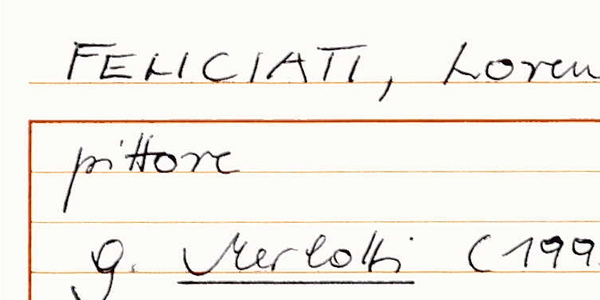 FELICIATI, Loren
pittore
g. Merlotti (199